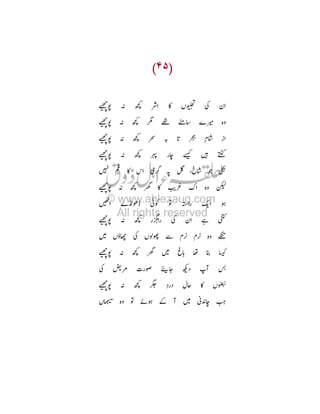 (۴۵)
ان کی تجلیوں کا اثر کچھ نہ پوچھیے
وہ میرے سامنے تھے مگر کچھ نہ پوچھیے
از شامِ ہجر تا بہ سحر کچھ نہ پوچھیے
کٹتے ہیں کیسے چار پہر کچھ نہ پوچھیے
شاخِ گل پہ اس کا نہیں
لیکن وہ اک غریب کا گھر کچھ نہ پوچھیے
ہو ایک تو کوئی ڈھونڈے انہیں
© www.ahlezauq.com
All rights reserved
کتنی ہے ان کی رہگزر کچھ نہ پوچھیے
وہ نرم نرم سے پھولوں کی چھاؤں میں
کیسا بنا تھا باغ میں گھر کچھ نہ پوچھیے
بس آپ دیکھ جایئے صورت مریض کی
نبضوں کا حال دردِ جگر کچھ نہ پوچھیے
جب چاندنی میں آ کے ہوئے تو وہ میہماں